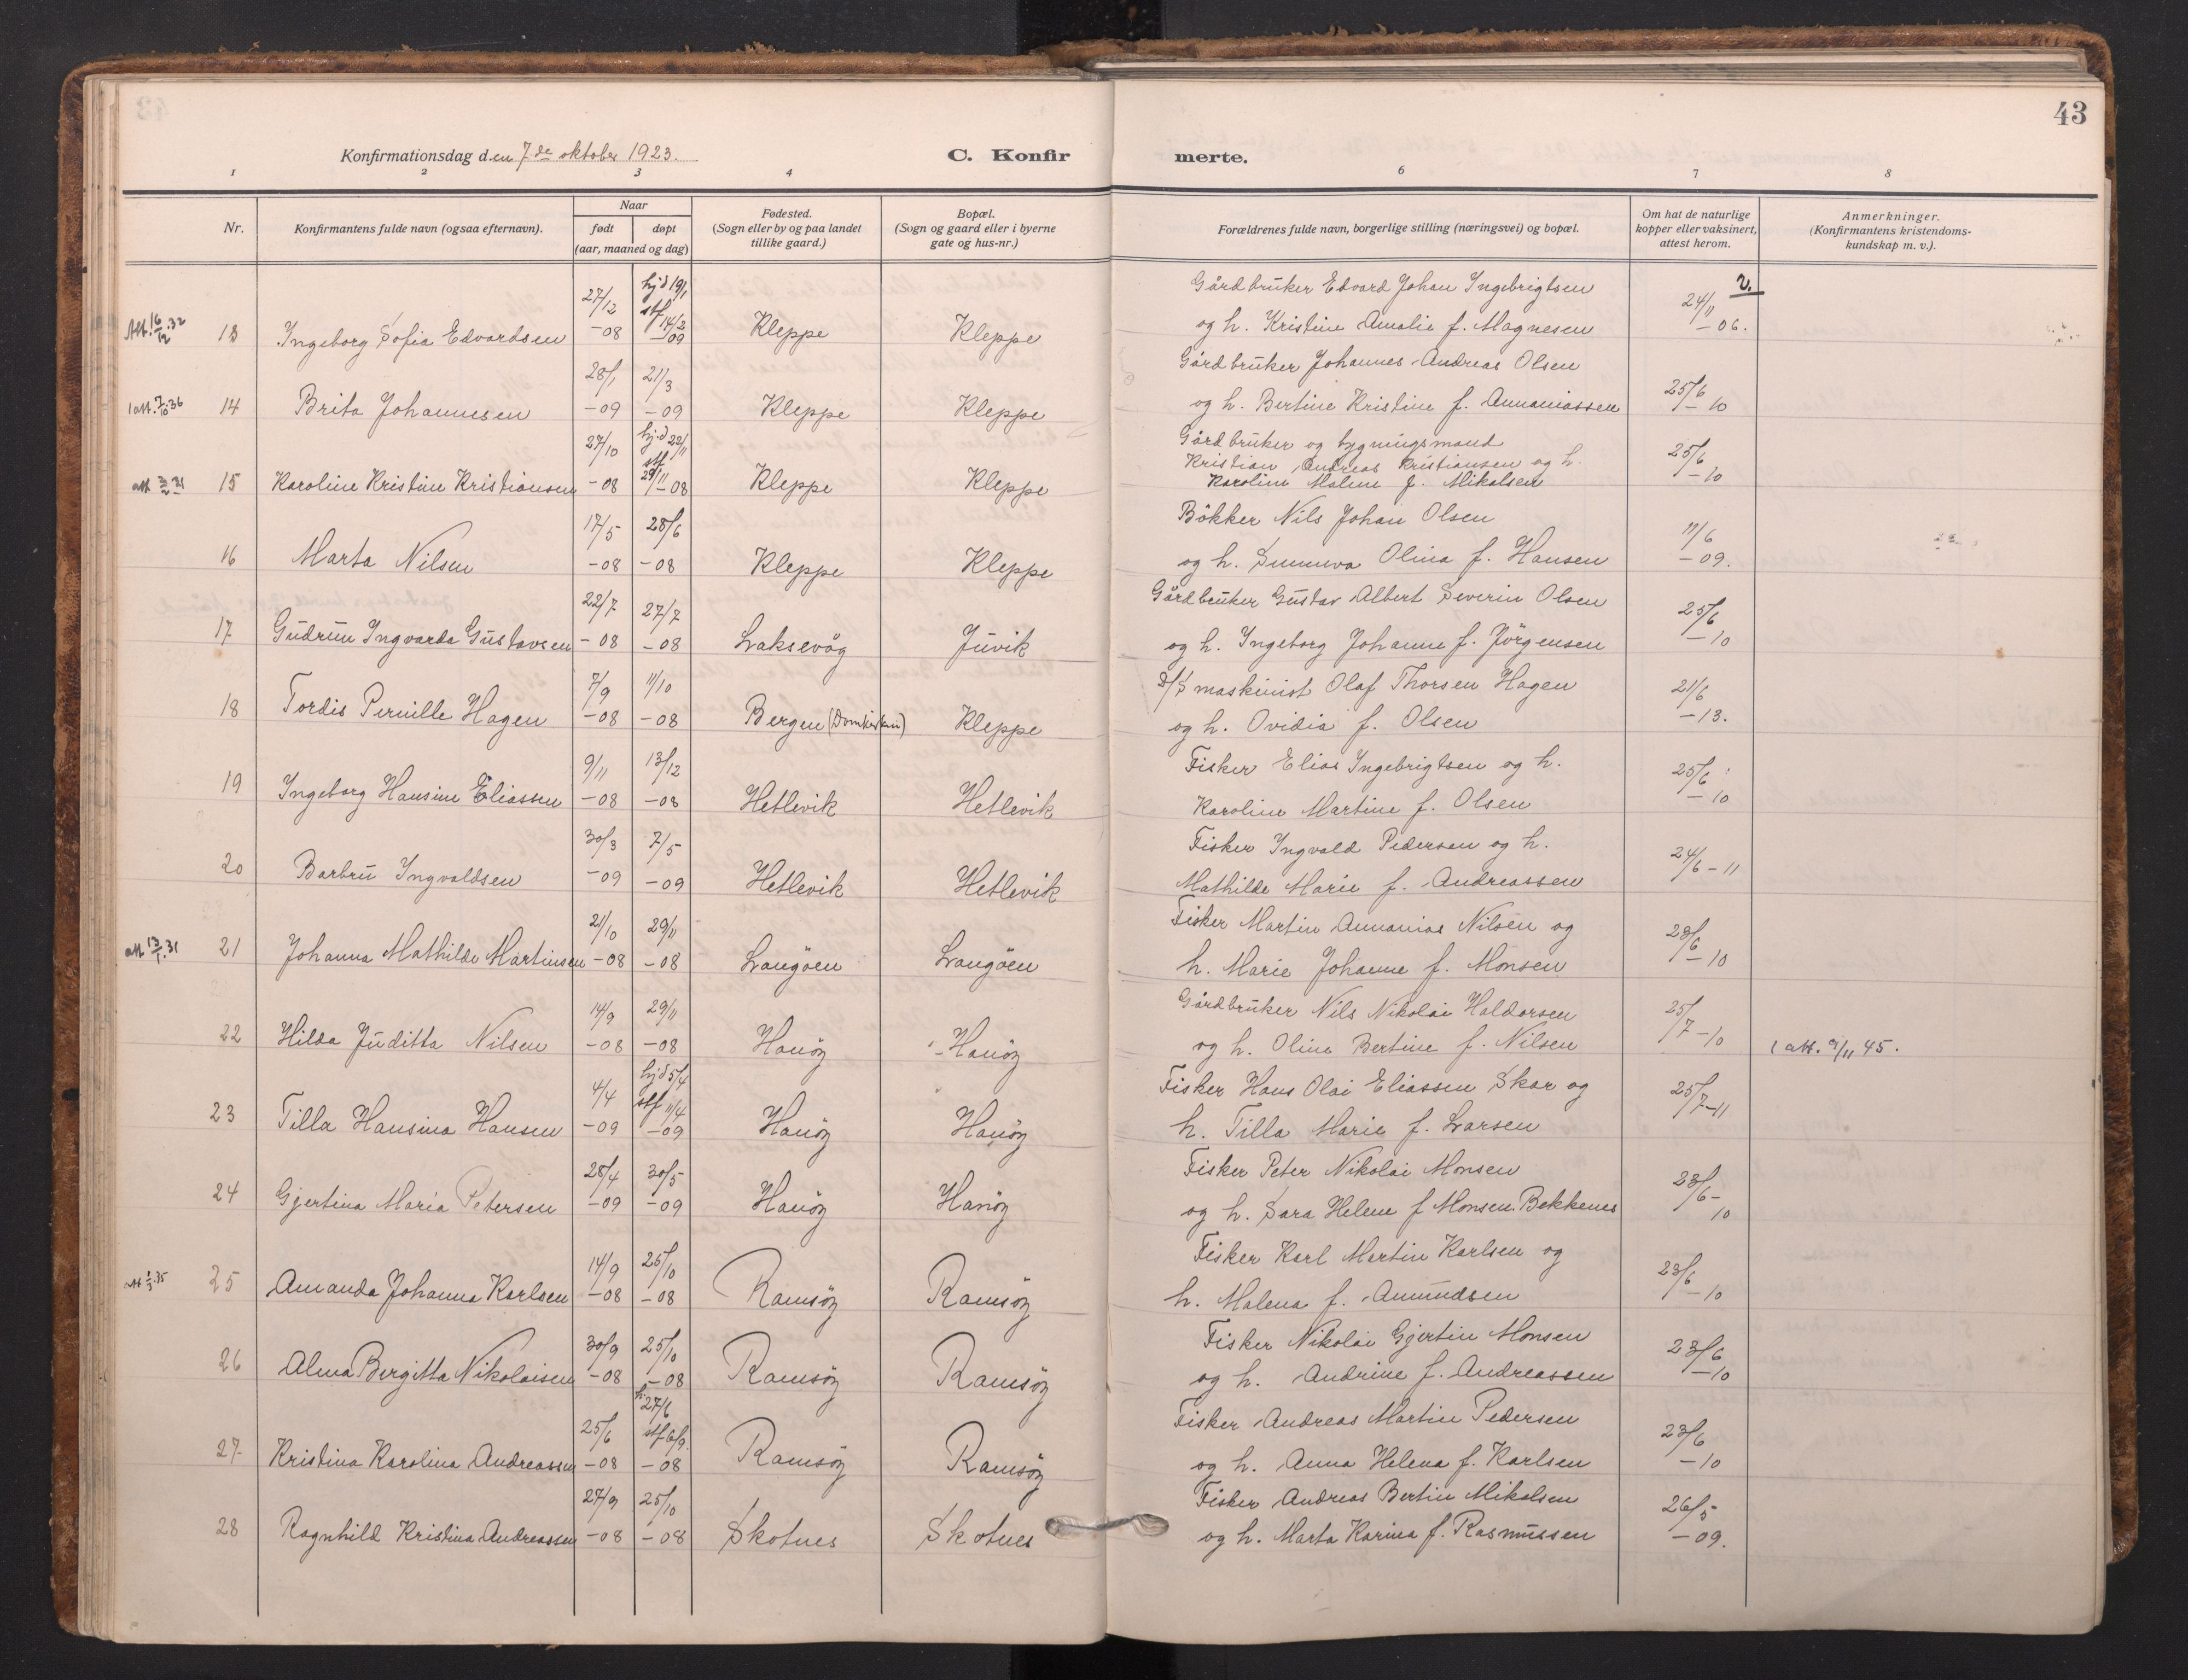 43
Konfirmationsdag den 7de oktober 1923.
C. Konfirmerte.
1 2 3 4 6 7 8
Nr.
Konfirmantens fulde navn (ogsaa efternavn).
Naar
født
døpt
(aar, maaned og dag)
Fødested.
(Sogn eller by og paa landet
tillike gaard.)
Bopæl.
(Sogn og gaard eller i byerne
gate og hus-nr.)
Forældrenes fulde navn, borgerlige stilling (næringsvei) og bopæl.
Om hat de naturlige
kopper eller vaksinert,
attest herom.
Anmerkninger.
(Konfirmantens kristendoms-
kundskap m. v.).
Gårdbruker Edvard Johan Ingebrigtsen v.
Att. 16/12.32 13 Ingeborg Sofia Edvardsen 27/12 -08 hjd 19/1 stf 14/2 -09 Kleppe Kleppe og h. Kristine Amalie f. Magnesen 24/11 -06.
Gårdbruker Johannes Andreas Olsen
1 att. 7/10.36 14 Brita Johannesen 28/1 -09 21/3 -09 Kleppe Kleppe og h. Bertine Kristine f. Annaniassen 25/6 -10
Gårdbruker og bygningsmand
Kristian Andreas Kristiansen og h.
att 3/2 31 15 Karoline Kristine Kristiansen 27/10 -08 hj.d 22/11 stf 29/11 -08 Kleppe Kleppe Karoline Malene f. Mikalsen 25/6 -10
Bökker Nils Johan Olsen
16 Marta Nilsen 17/5 -08 28/6 -08 Kleppe Kleppe og h. Sunneva Olina f. Hansen 11/6 -09.
Gårdbruker Gustav Albert Severin Olsen
17 Gudrun Ingvarda Gustavsen 22/7 -08 27/7 -08 Laksevåg Juvik og h. Ingeborg Johanne f. Jörgensen 25/6 -10
D/S maskinist Olaf Thorsen Hagen
18 Tordis Pernille Hagen 7/9 -08 11/10 -08 Bergen (Domkirken) Kleppe og h. Ovidia f. Olsen 21/6 -13.
Fisker Elias Ingebrigtsen og h.
19 Ingeborg Hansine Eliassen 9/11 -08 13/12 -08 Hetlevik Hetlevik Karoline Martine f. Olsen 25/6 -10
Fisker Ingvald Pedersen og h.
20 Barbru Ingvaldsen 30/3 -09 7/5 -09 Hetlevik Hetlevik Mathilde Marie f. Andreassen 24/6 -11
Fisker Martin Annanias Nilsen og
att 13/1.31 21 Johanna Mathilde Martinsen 21/10 -08 29/11 -08 Langöen Langöen h. Marie Johanne f. Monsen 23/6 -10
Gårdbruker Nils Nikolai Haldorsen
22 Hilda Juditta Nilsen 14/9 -08 29/11 -08 Hanöy Hanöy og h. Oline Bertine f. Nilsen 25/7 -10 1 att. 9/11 45.
Fisker Hans Olai Eliassen Skar og
23 Tilla Hansina Hansen 4/4 -09 hjd 5/4 stf 11/4 -09 Hanöy Hanöy h. Tilla Marie f. Larsen 25/7 -11
Fisker Peter Nikolai Monsen
24 Gjertina Maria Petersen 28/4 -09 30/5 -09 Hanöy Hanöy og h. Sara Helene f Monsen Bekkenes 23/6 -10
Fisker Karl Martin Karlsen og
att 1/3.35 25 Amanda Johanna Karlsen 14/9 -08 25/10 -08 Ramsöy Ramsöy h. Malena f. Amundsen 23/6 -10
Fisker Nikolai Gjertin Monsen
26 Alma Bergitta Nikolaisen 30/9 -08 25/10 -08 Ramsöy Ramsöy og h. Andrine f. Andreassen 23/6 -10
Fisker Andreas Martin Pedersen
27 Kristina Karolina Andreassen 25/6 -08 h. 27/6 stf 6/9. -08 Ramsöy Ramsöy og h. Anna Helena f. Karlsen 23/6 -10
Fisker Andreas Bertin Mikalsen
28 Ragnhild Kristina Andreassen 27/9 -08 25/10 -08 Skotnes Skotnes og h. Marta Karina f. Rasmussen 26/5 -09.